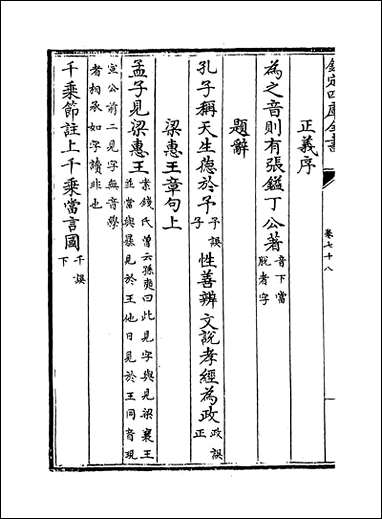 欽定四庫全書
卷七十八
正義序
為之音則有張鎰丁公著音下當脫者字
題辭
孔子稱天生德於予予誤子 性善辨文說孝經為政政誤正
梁惠王章句上
孟子見梁惠王案錢氏曾云孫奭曰此見字與見梁襄王並當與暴見於王他日見於王同音現
宣公前二見字無音學者相承如字讀非也
千乘節註上千乘當言國千誤下